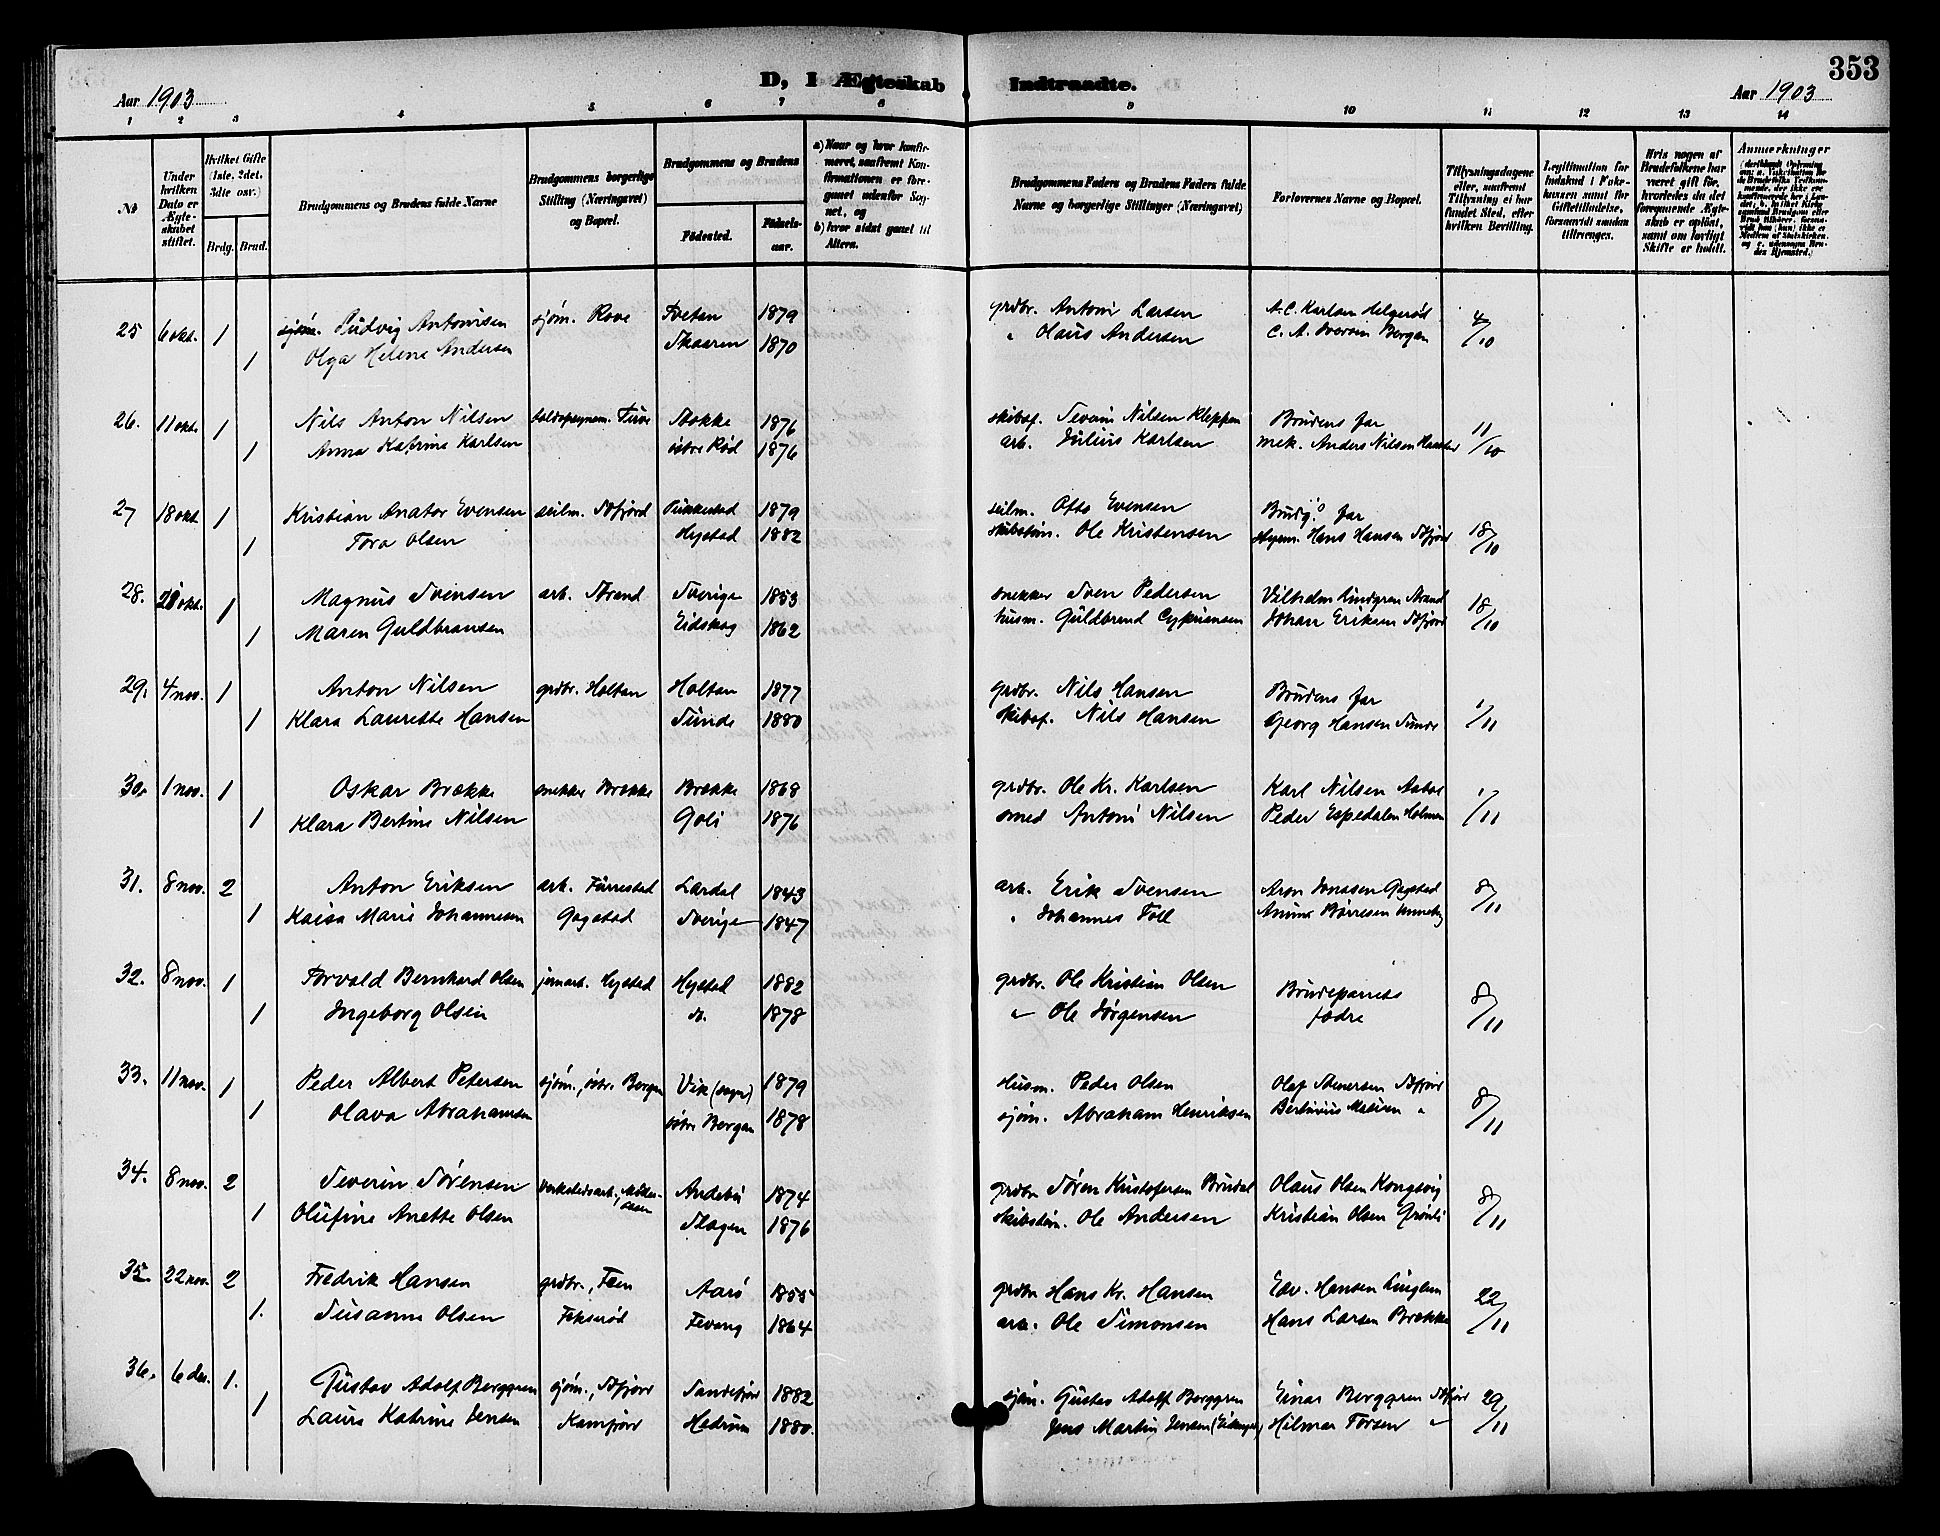 353
D, I Ægteskab Indtraadte.
Aar 1903
Aar 1903
1 2 3 4 5 6 7 8 9 10 11 12 13 14
№
Under hvilken Dato er Ægteskabet stiftet.
Hvilket Gifte (1ste, 2det, 3die osv.)
Brdg. Brud.
Brudgommens og Brudens fulde Navne
Brudgommens borgerlige Stilling (Næringsvei) og Bopæl.
Brudgommens og Brudens
Fødested.
Fødselsaar.
a) Naar og hvor konfirmeret, saafremt Konfirmationen er foregaaet udenfor Sognet, og
b) hvor sidst gaaet til Alters.
Brudgommens Faders og Brudens Faders fulde Navne og borgerlige Stillinger (Næringsvei)
Forlovernes Navne og Bopæl.
Tillysningsdagene eller, saafremt Tillysning ei har fundet Sted, efter hvilken Bevilling.
Legitimation for Indskud i Enkekassen samt for Giftetilladelse, forsaavidt saadan tiltrænges.
Hvis nogen af Brudefolkene har været gift før, hvorledes da det foregaaende Ægteskab er opløst, samt om lovligt Skifte er holdt.
Anmærkninger
25 6 okt. 1 sjøm. Ludvig Antonisen sjøm. Rove Tvetan 1879 grdbr. Anton Larsen A. C. Karlsen Helgerød 4/10
1 Olga Helene Andersen Skaaren 1870 " Olaus Andersen C. A. Iversen Bergan
26. 11 okt. 1 Nils Anton Nilsen Stokke 1876 skibsf. Severin Nilsen Kleppan Brudens far 11/10
1 Anna Katrine Karlsen østre Rød 1876 arb. Julius Karlsen mek. Anders Nilsen
27 18 okt. 1 Kristian Anator Evensen seilm. Sfjord Pukkestad 1879 seilm. Otto Evensen Brudg.s far 18/10
1 Tora Olsen Hystad 1882 skibstøm. Ole Kristensen Hans Hansen Sfjord
28. okt. 1 Magnus Svensen arb. Strand Sverige 1853 snekker Sven Pedersen Vilhelm Lindgren Strand 18/10
1 Maren Guldbransen Eidskog 1862 husm. Guldbrand Cypriansen Johan Eriksen Sfjord
29. 4 nov. 1 Anton Nilsen grdbr. Holtan Holtan 1877 grdbr. Nils Hansen Brudens far 1/11
1 Klara Laurette Hansen Sunde 1880 skibsf. Nils Hansen Georg Hansen Sunde
30. 1 nov. 1 Oskar Brække snekker Brække Brække 1868 grdbr. Ole Kr. Karlsen Karl Nilsen 1/11
1 Klara Bertine Nilsen Goli 1876 smed Anton Nilsen Peder Espedalen Holmen
31. 8 nov. 2 Anton Eriksen arb. Furrestad Lardal 1843 arb. Erik Svensen Aron Jonassen Gogstad 8/11
1 Kaisa Marie Johannesen Gogstad Sverige 1847 " Johannes Toll Børresen Unneberg
32. 8 nov. 1 Torvald Bernhard Olsen jernarb. Hystad Hystad 1882 grdbr. Ole Kristian Olsen Brudeparrets 8/11
1 Ingeborg Olsen do. 1878 " Ole Jørgensen fædre
33. 11 nov. 1 Peder Albert Petersen sjøm., østre Bergan Vik (sogn) 1879 Husm. Peder Olsen Olaf Stenersen Sfjord 8/11
1 Olava Abrahamsen østre Bergan 1878 sjøm. Abraham Henriksen Bertinius Madsen "
34. 8 nov. 2 Severin Sørensen verkstedsarb., Andebu 1874 grdbr. Søren Kristofersen Brudal Olaus Olsen Kongsvig 8/11
1 Olufine Anette Olsen Slagen 1876 skibstøm. Ole Andersen Kristian Olsen Grønli
35. 22 nov. 2 Fredrik Hansen grdbr., Fæn Aarø 1855 grdbr. Hans Kr. Hansen Edv. Hansen Lingelem 22/11
1. Susanne Olsen Fekserød Fevang 1864 arb. Ole Simonsen Hans Larsen Brække
36. 6 des. 1. Gustav Adolf Berggren sjøm., Sfjord Sandefjord 1882 sjøm. Gustav Adolf Berggren Einar Berggren Sfjord 29/11
1 Laura Katrine Jensen Kamfjord Hedrum 1880. Jens Martin Jensen Hilmar Torsen "